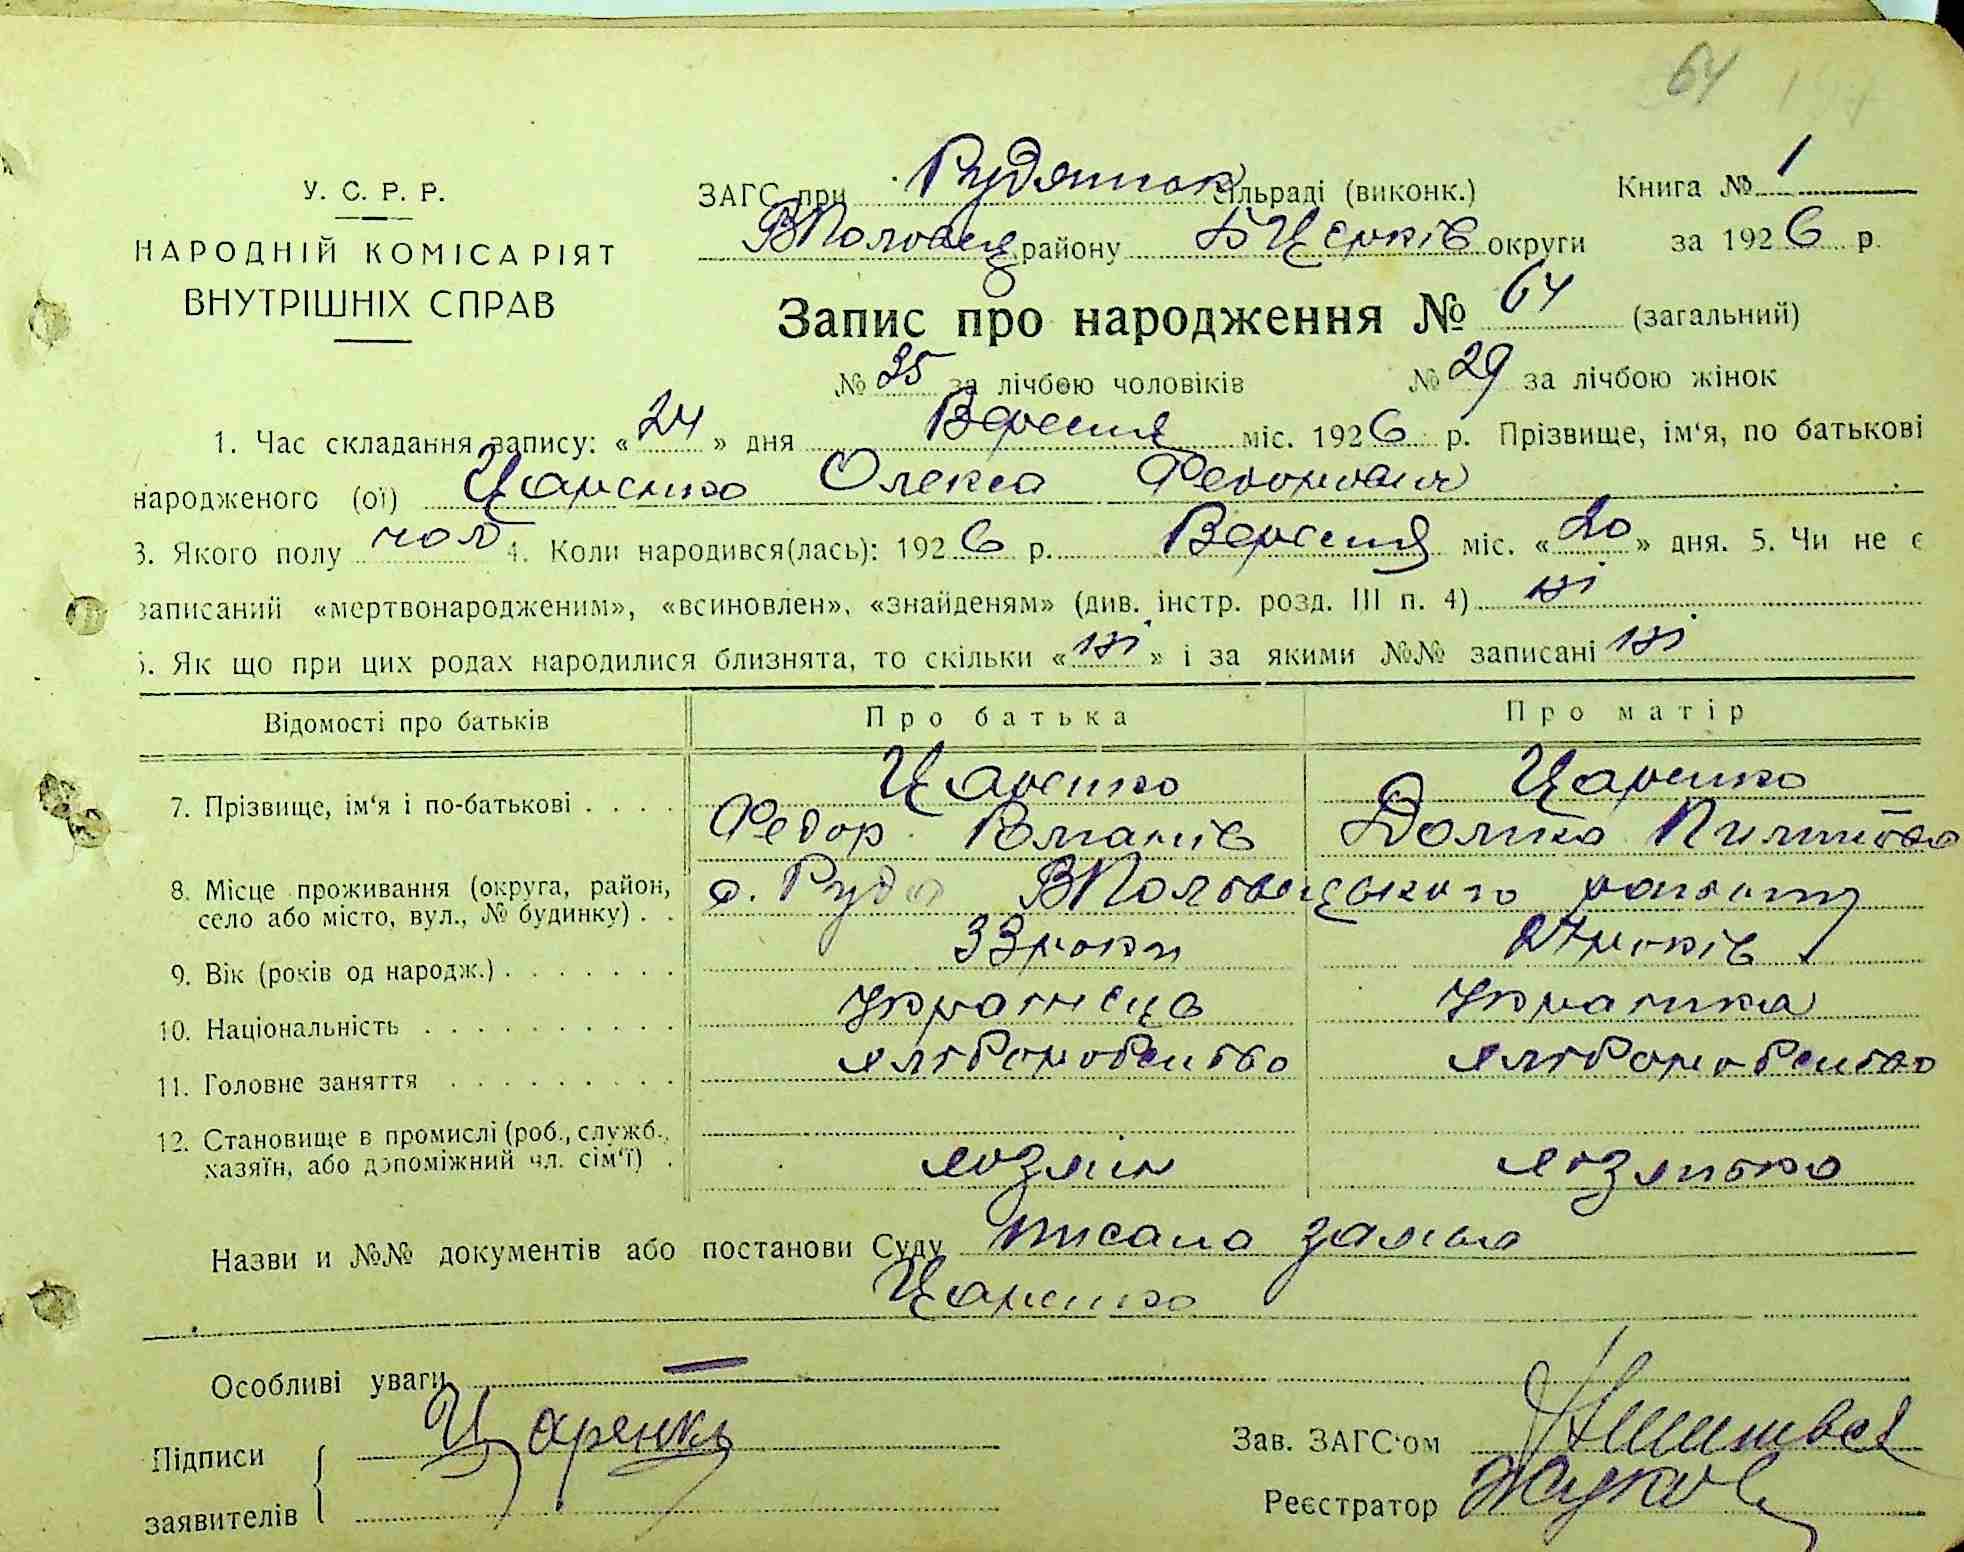 64
У. С. Р. Р.
НАРОДНІЙ КОМІСАРІЯТ
ВНУТРІШНІХ СПРАВ
ЗАГС при Рудянськ сільраді (виконк.) Книга № 1
ВПоловец району БЦерків округи за 1926 р.
Запис про народження № 64 (загальний)
№ 35 за лічбою чоловіків № 29 за лічбою жінок
1. Час складання запису: «24» дня Вересня міс. 1926 р. Прізвище, ім'я, по батькові
народженого (ої) Царенко Олекса Федорович
3. Якого полу чол 4. Коли народився(лась): 1926 р. Вересня міс. «20» дня. 5. Чи не є
записаний «мертвонародженим», «всиновлен», «знайденям» (див. інстр. розд. III п. 4) ні
6. Як що при цих родах народилися близнята, то скільки «ні» і за якими №№ записані ні
Відомості про батьків Про батька Про матір
7. Прізвище, ім'я і по-батькові . . . . Царенко Царенко
Федор Домка
8. Місце проживання (округа, район, с. Руда ВПоловецького району
село або місто, вул., № будинку) . .
9. Вік (років од народж.) . . . . . . . 33 роки 27 років
10. Національність . . . . . . . . . . Украінець Украінка
11. Головне заняття . . . . . . . . . хліборобство хліборобство
12. Становище в промислі (роб., служб.,
хазяїн, або допоміжний чл. сім'ї) . хозяін хозяйка
Назви и №№ документів або постанови Суду писала заява
Царенко
Особливі уваги —
Підписи Царенко Зав. ЗАГС'ом
заявителів Реєстратор